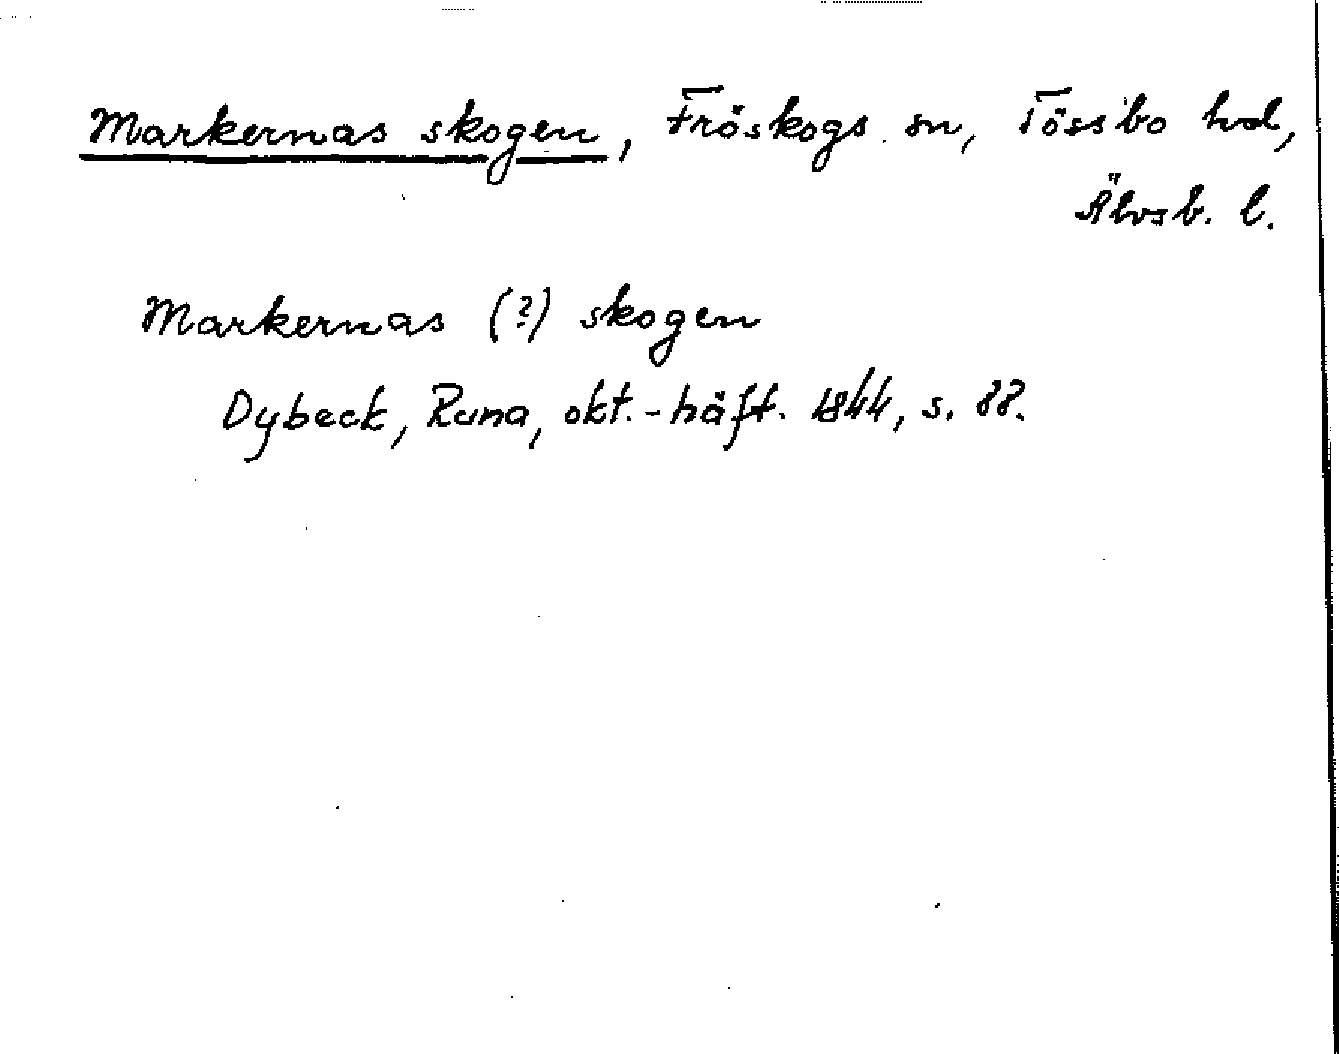 Markernas skogen, Fröskogs sn, Tössbo hd,
Älvsb. l.
Markernas (?) skogen
Dybeck, Runa, okt.-häft. 1844, s. 88.